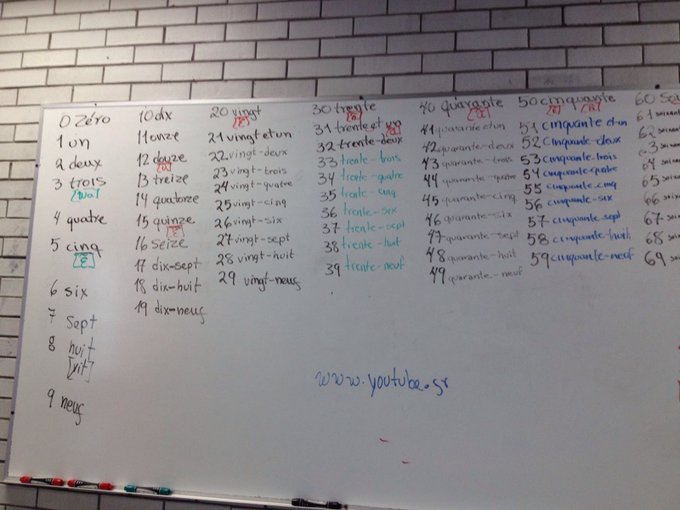 0 zéro
1 un
2 deux
3 trois
[wa]
4 quatre
5 cinq
[ɛ̃]
6 six
7 sept
8 huit
[ɥit]
9 neuf
10 dix
11 onze
12 douze
[u]
13 treize
14 quatorze
15 quinze
[ɛ̃]
16 seize
17 dix-sept
18 dix-huit
19 dix-neuf
20 vingt
[ɛ̃]
21 vingt et un
22 vingt-deux
23 vingt-trois
24 vingt-quatre
25 vingt-cinq
26 vingt-six
27 vingt-sept
28 vingt-huit
29 vingt-neuf
30 trente
31 trente et un
32 trente-deux
33 trente-trois
34 trente-quatre
35 trente-cinq
36 trente-six
37 trente-sept
38 trente-huit
39 trente-neuf
40 quarante
41 quarante et un
42 quarante-deux
43 quarante-trois
44 quarante-quatre
45 quarante-cinq
46 quarante-six
47 quarante-sept
48 quarante-huit
49 quarante-neuf
50 cinquante
51 cinquante et un
52 cinquante-deux
53 cinquante-trois
54 cinquante-quatre
55 cinquante-cinq
56 cinquante-six
57 cinquante-sept
58 cinquante-huit
59 cinquante-neuf
60
61
62
63
64
65
66
67
68
69
www.youtube.gr